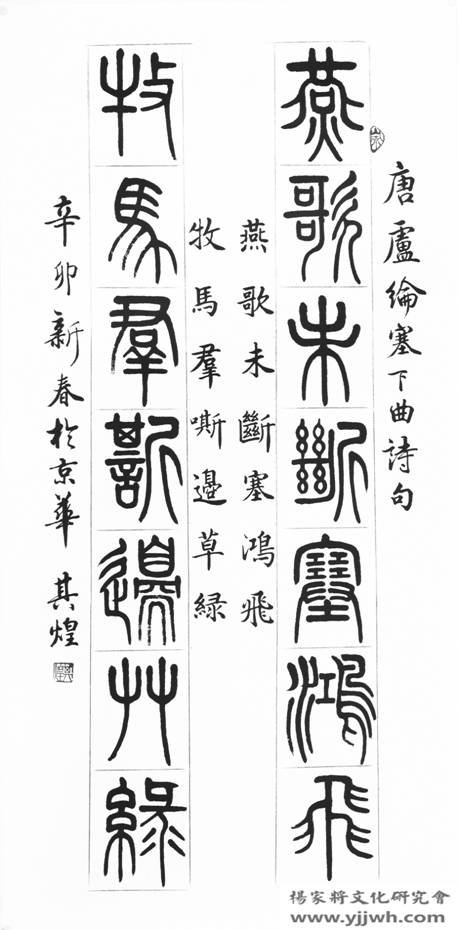 唐盧綸塞下曲詩句
燕歌未斷塞鴻飛
燕歌未斷塞鴻飛
牧馬羣嘶邊草緑
牧馬羣嘶邊艸緑
辛卯新春於京華 其煌
楊家將文化研究會
www.yjjwh.com